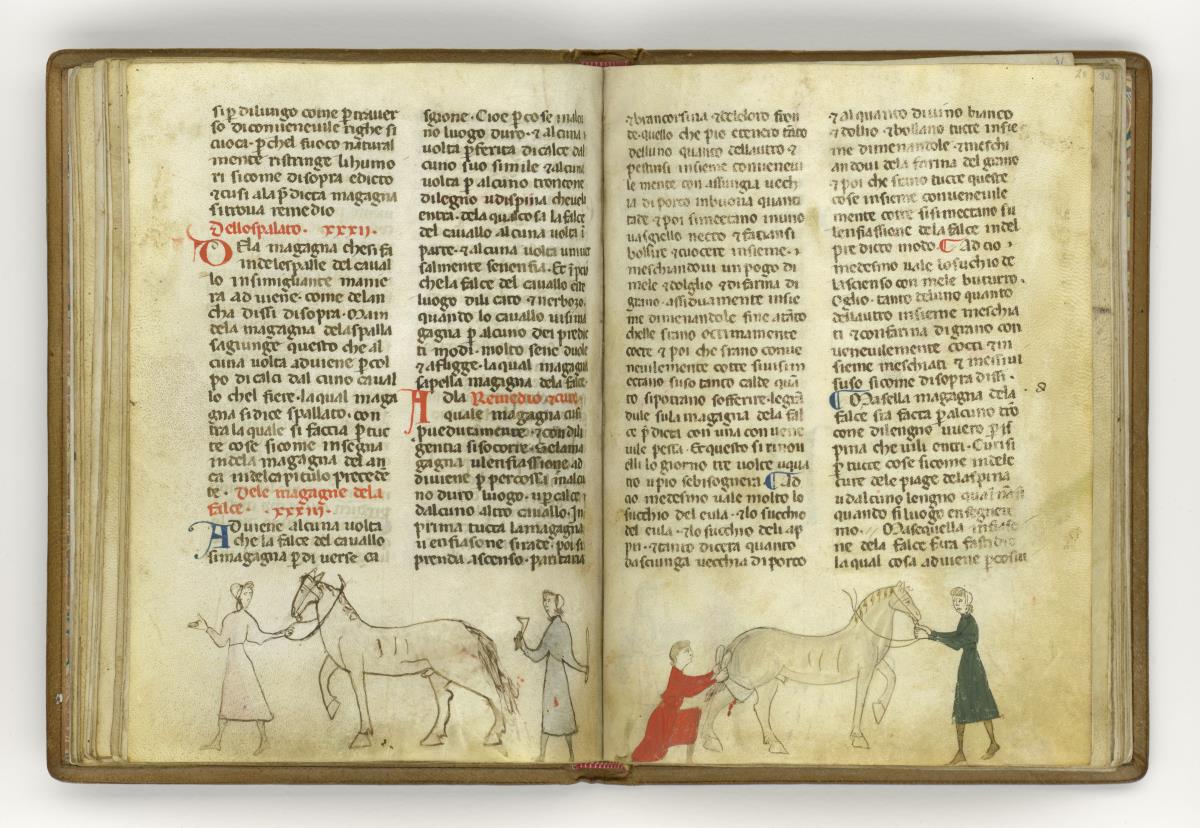 si ꝑ dilungo come ꝑ trauer
so diconueneuile righe si
cuoca · ꝑ chel fuoco natural
mente ristringe li humo
ri sicome disopra edicto
⁊ cusi ala ꝑdicta magagna
si troua remedio
Dello spalato · xxxii ·
Dela magagna che si fa
indele spalle del caual
lo insimigliante manie
ra aduiene · come delan
cha dissi disopra · Main
dela magagna dela spalla
sagiunge questo che al
cuna volta aduiene ꝑ col
po di calci dalcuno caual
lo chel fiere · la qual maga
gna si dice spallato · con
tra la quale si faccia ꝑ tuc
te cose sicome insegna
indela magagna delan
ca indel capitulo precede
te · Dele magagne dela
falce · xxxiii ·
Aduiene alcuna uolta
che la falce del cauallo
si magagna ꝑ diuerse ca
sgione · Cioe ꝑ cose
no luogo duro · ⁊ alcuna
volta ꝑ ferita di calce dal
cuno suo simile ⁊ alcuna
volta ꝑ alcuno troncone
di legno u dispina
entra · dela qual cosa la falce
del cauallo alcuna uolta i
parte · ⁊ alcuna uolta
salmente sene
che la falce del cauallo
luogo dilicato ⁊ neruozo
quando lo cauallo
gagna ꝑ alcuno dei predic
ti modi · molto sene duole
⁊ afligge · la qual magagna
sapella magagna dela falce ·
Ala Remedio ⁊ cura ·
quale magagna cusi
puedutamente · ⁊ con dili
gentia si socorre · Se la ma
gagna u lenfiassione ad
diuiene ꝑ percossa in alcu
no duro luogo · u ꝑ calce
dalcuno altro cauallo · In
prima tucta la magagna
u enfiasone si rade · poi si
prenda ascenso · paritaria
⁊ brancorsina · ⁊ deleloro fron
de · quello che pio
delluno quanto dellautro ⁊
pestinsi insieme conueneui
le mente con assungia uech
ia di porco in buona quanti
tade ⁊ poi si mectano in uno
uasgiello necto ⁊ faciansi
bollire ⁊ cuocere insieme ·
meschiandoui un pogo di
mele ⁊ dolglio ⁊ di farina di
grano · assiduamente insie
me dimenandole fine atanto
chelle siano octimamente
cocte ⁊ poi che siano conue
neuilemente cotte siui si m
ectano suso tanto calde quan
to si potrano sofferire · legan
dule su la magagna dela fal
ce ꝑdicta con una conuene
uile pessa · Et questo si rinou
elli lo giorno tre uolte u qua
no u pio se bisognera · Ad
cio medesmo uale molto lo
succhio del eula · ⁊ lo succhio
del eula · ⁊ lo succhio deli ap
pii · ⁊ tanto di cera quanto
da sciungia uecchia di porco
⁊ alquanto di uino bianco
⁊ dolio ⁊ bollano tucte insie
me dimenandole · ⁊ meschi
andoui dela farina del grano
⁊ poi che siano tucte queste
cose insieme conueneuile
mente cotte si si mectano su
lenfiassione dela falce indel
predicto modo · Ad cio
medesmo uale lo suchio de
lascienso con mele buturro ·
Oglio · tanto deluno quanto
dellautro insieme meschia
ti ⁊ con farina di grano con
ueneuilemente cocti ⁊ in
sieme meschiati ⁊ messiui
suso sicome disopra dissi ·
Ma se la magagna dela
falce sia facta ꝑ alcuno tro
cone di lengno uuero ꝑ is
pina che uili entri · Curisi
ꝑ tucte cose sicome indele
cure dele piage dela spina
u dalcuno lengno
quando si luogo ensegnere
mo · Ma se quella infiasio
ne dela falce
la qual cosa aduiene ꝑ cosa